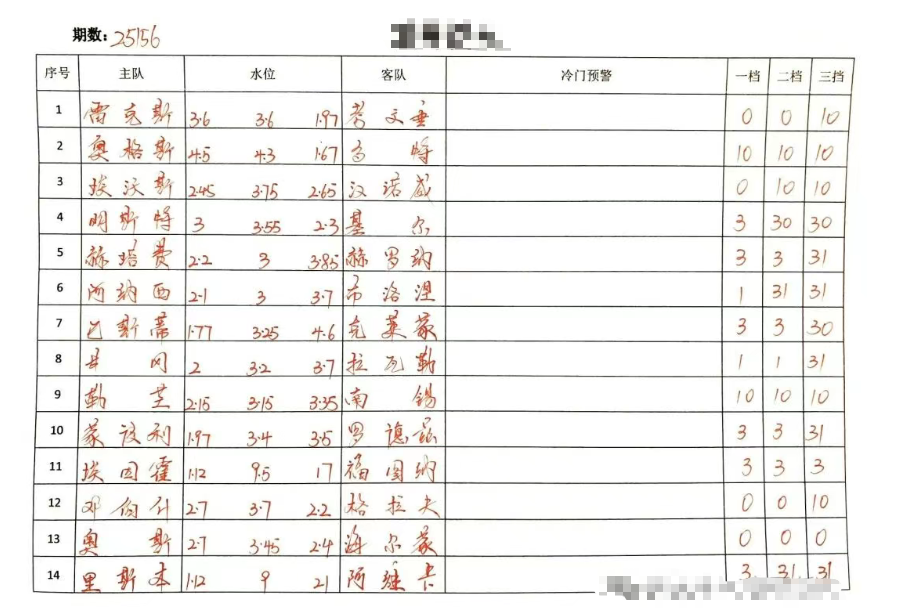 期数: 25156
序号 主队 水位 客队 冷门预警 一档 二档 三挡
1 雷克斯 3.6 3.6 1.97 考文垂 0 0 10
2 奥格斯 4.5 4.3 1.67 多特 10 10 10
3 埃沃斯 2.45 3.75 2.65 汉诺威 0 10 10
4 明斯特 3 3.55 2.3 基尔 3 30 30
5 赫塔费 2.2 3 3.85 赫罗纳 3 3 31
6 阿纳西 2.1 3 3.7 布洛涅 1 31 31
7 巴斯蒂 1.77 3.25 4.6 克莱蒙 3 3 30
8 冈 2 3.2 3.7 拉瓦勒 1 1 31
9 勒芒 2.15 3.15 3.35 南锡 10 10 10
10 蒙彼利 1.97 3.4 3.5 罗德兹 3 3 31
11 埃因霍 1.12 9.5 17 福图纳 3 3 3
12 邓伯什 2.7 3.7 2.2 格拉夫 0 0 10
13 奥斯 2.7 3.45 2.4 海尔蒙 0 0 0
14 里斯本 1.12 9 21 阿维卡 3 31 31